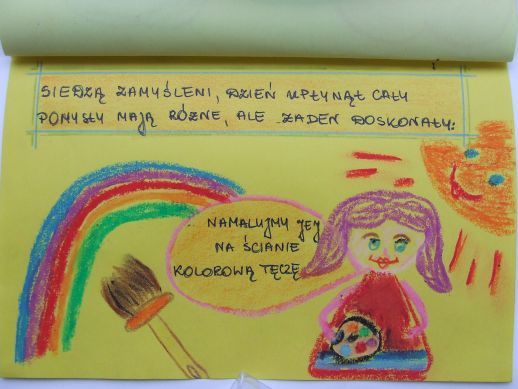 SIEDZĄ ZAMYŚLENI, DZIEŃ UPŁYNĄŁ CAŁY
POMYSŁY MAJĄ RÓŻNE, ALE ŻADEN DOSKONAŁY:
NAMALUJMY JEJ
NA ŚCIANIE
KOLOROWĄ TĘCZĘ